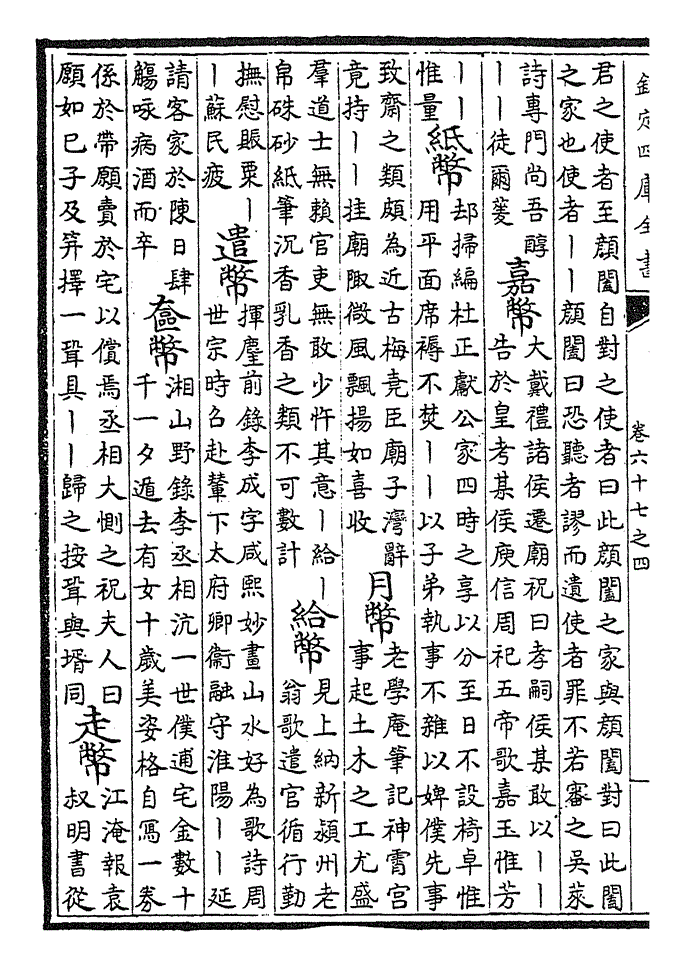 欽定四庫全書
卷六十七之四
君之使者至顔闔自對之使者曰此顔闔之家與顔闔對曰此闔
之家也使者｜｜顔闔曰恐聽者謬而遺使者罪不若審之吴萊
詩專門尚吾醇
｜｜徒爾菱
嘉幣
大戴禮諸侯遷廟祝曰孝嗣侯某敢以｜｜
告於皇考某侯庾信周祀五帝歌嘉玉惟芳
｜｜
惟量
紙幣
却掃編杜正獻公家四時之享以分至日不設椅卓惟
用平面席褥不焚｜｜以子弟執事不雜以婢僕先事
致齋之類頗為近古梅堯臣廟子灣辭
竟持｜｜挂廟陬微風飄揚如喜收
月幣
老學庵筆記神霄宫
事起土木之工尤盛
羣道士無賴官吏無敢少忤其意｜給｜
帛硃砂紙筆沉香乳香之類不可數計
給幣
見上納新潁州老
翁歌遣官循行勤
撫慰賑粟｜
｜蘇民疲
遣幣
揮麈前錄李成字咸熙妙畫山水好為歌詩周
世宗時召赴輦下太府卿衛融守淮陽｜｜延
請客家於陳日肆
觴咏病酒而卒
奩幣
湘山野錄李丞相沆一世僕逋宅金數十
千一夕遁去有女十歲美姿格自寫一券
係於帶願賣於宅以償焉丞相大惻之祝夫人曰
願如已子及笄擇一聓具｜｜歸之按聓與壻同
走幣
江淹報袁
叔明書從